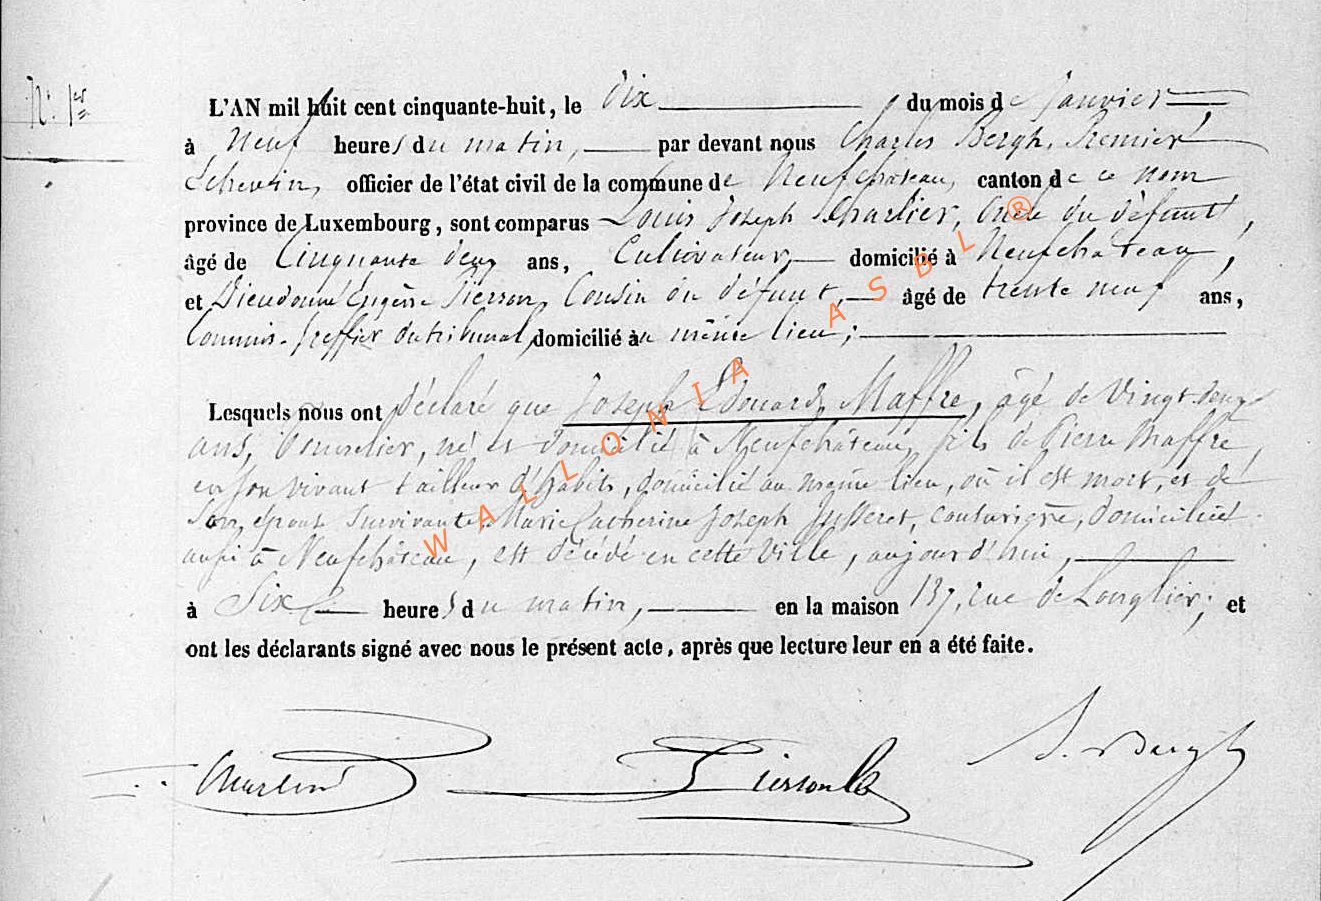 N° 1er
L'AN mil huit cent cinquante-huit, le Dix du mois de Janvier
à Neuf heures du matin, par devant nous Charles Bergh, Premier
Echevin, officier de l'état civil de la commune de Neufchâteau, canton de ce nom
province de Luxembourg, sont comparus Louis Joseph Charlier, Oncle du défunt,
âgé de Cinquante deux ans, Cultivateur, domicilié à Neufchâteau,
et Dieudonné Eugène Pierson, Cousin du défunt, âgé de trente neuf ans,
Commis-Greffier du tribunal, domicilié au même lieu;
Lesquels nous ont déclaré que Joseph Edouard Maffre, âgé de Vingt-deux
ans, né et domicilié à Neufchâteau, fils de Pierre Maffre,
en son vivant tailleur d'habits, domicilié au même lieu, où il est mort, et de
Son épouse Survivante Marie Catherine Joseph Jusseret, couturière, domiciliée
aussi à Neufchâteau, est décédé en cette Ville, aujourd'hui,
à Six heures du matin, en la maison 137, rue de Longlier; et
ont les déclarants signé avec nous le présent acte, après que lecture leur en a été faite.
Charlier Pierson Bergh
WALLONIA ASBL ®